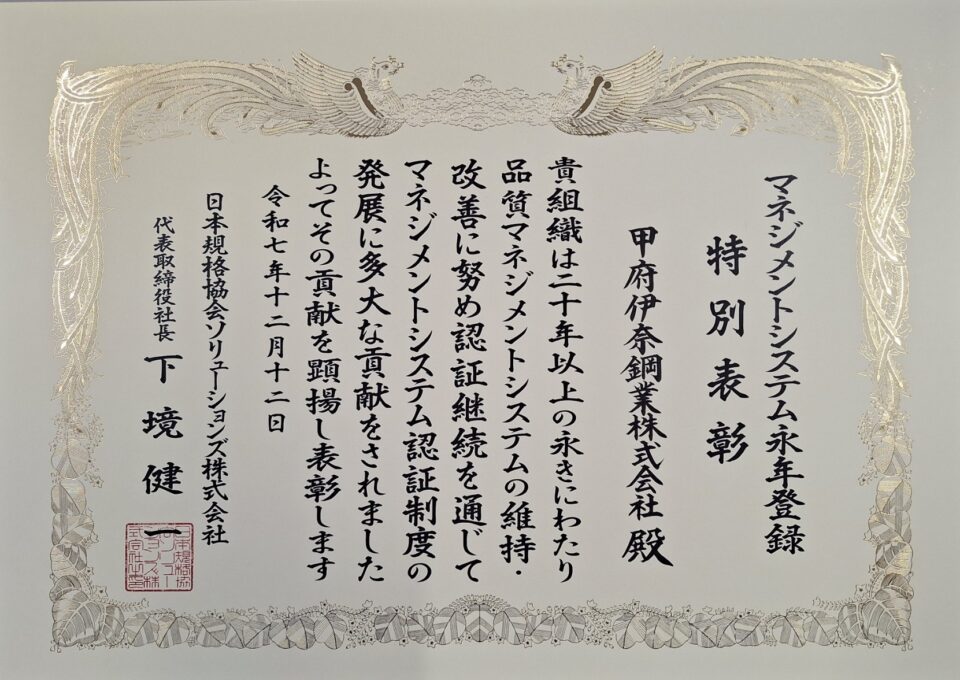 マネジメントシステム永年登録
特別表彰
甲府伊奈鋼業株式会社 殿
貴組織は二十年以上の永きにわたり
品質マネジメントシステムの維持・
改善に努め認証継続を通じて
マネジメントシステム認証制度の
発展に多大な貢献をされました
よってその貢献を顕揚し表彰します
令和七年十二月十二日
日本規格協会ソリューションズ株式会社
代表取締役社長 下境健一